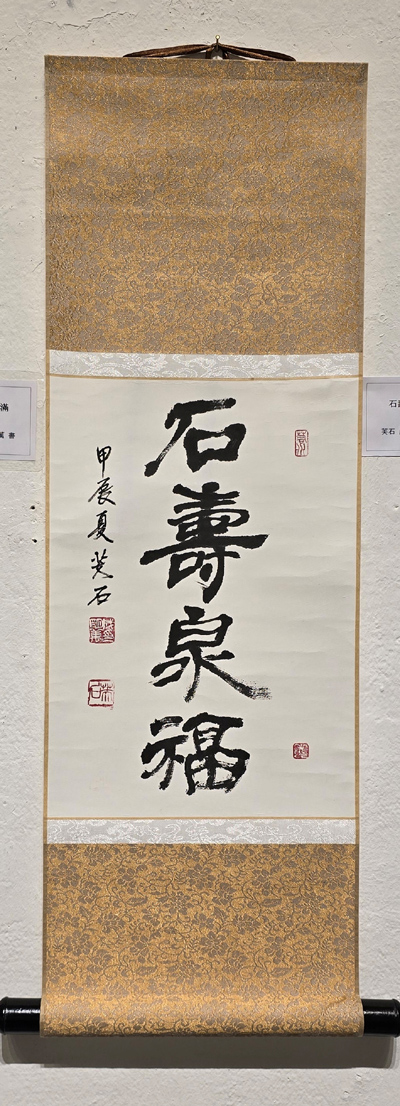 石壽泉福
甲辰夏芙石
滿
書
石
芙石